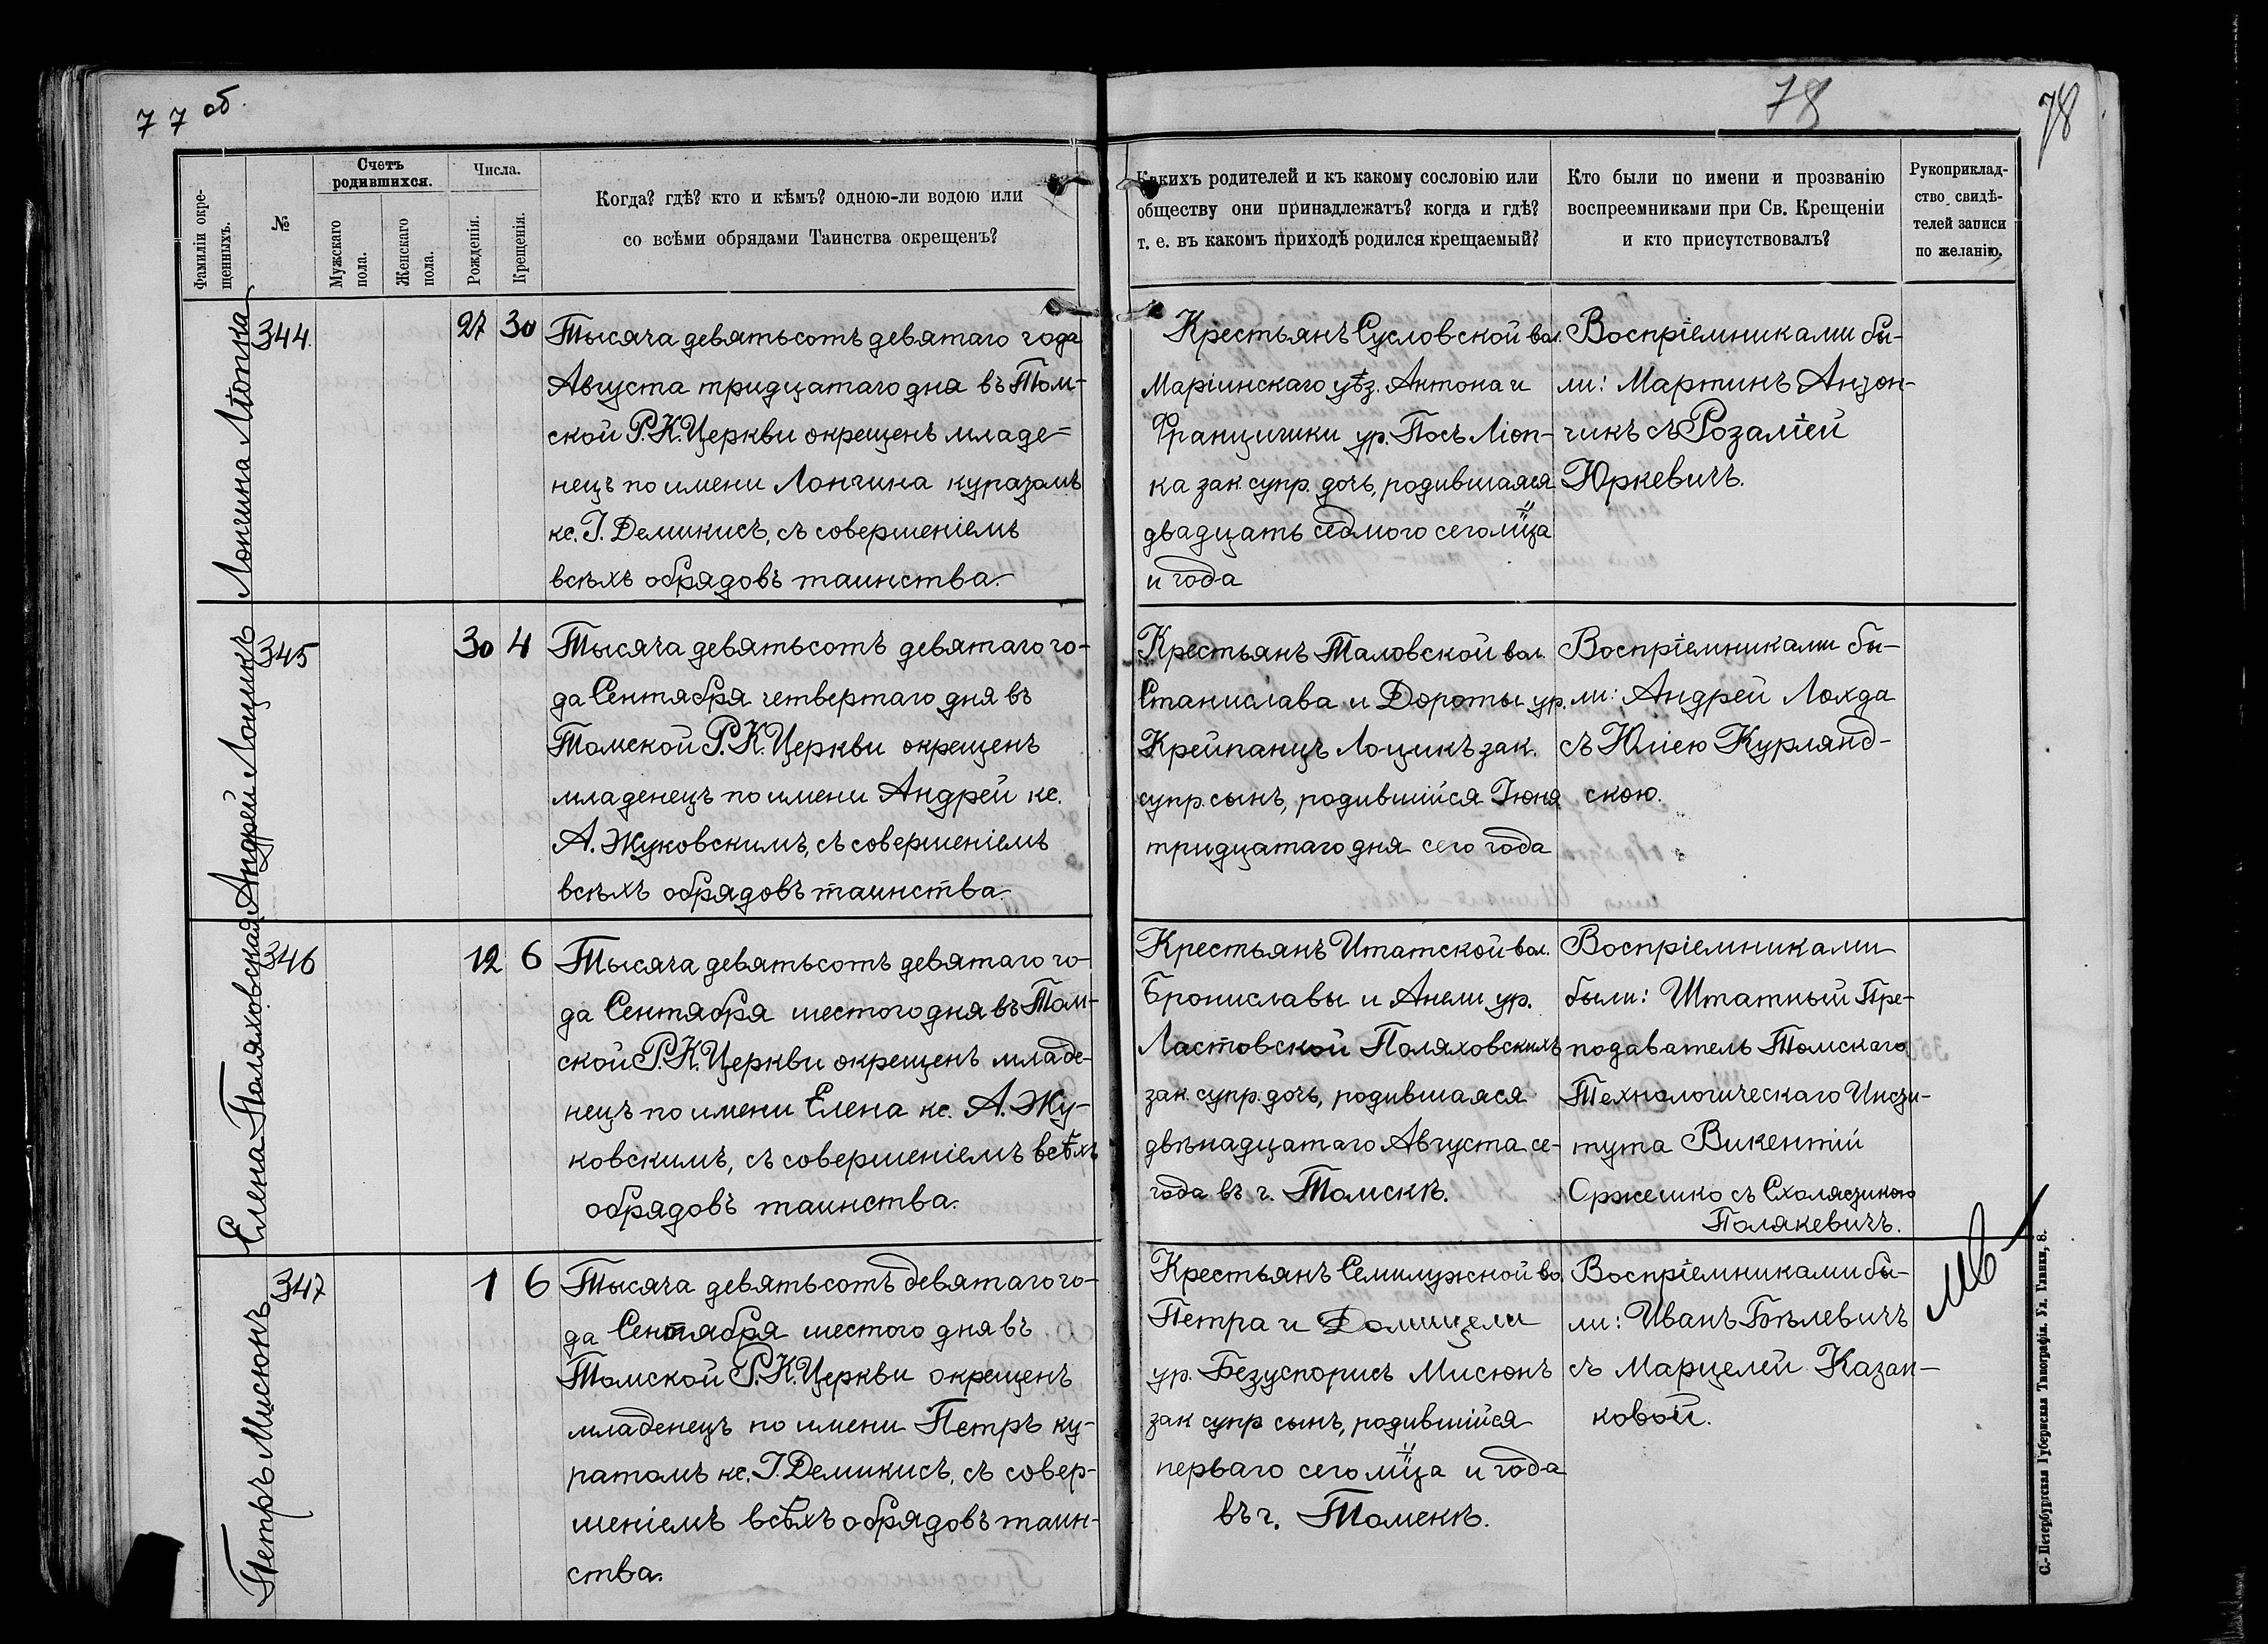 77 об.
78
78
Фамиліи окре-
щенныхъ.
№
Счетъ
родившихся.
Мужскаго
пола.
Женскаго
пола.
Числа.
Рожденія.
Крещенія.
Когда? гдѣ? кто и кѣмъ? одною-ли водою или
со всѣми обрядами Таинства окрещенъ?
Какихъ родителей и къ какому сословію или
обществу они принадлежатъ? когда и гдѣ?
т. е. въ какомъ приходѣ родился крещаемый?
Кто были по имени и прозванію
воспреемниками при Св. Крещеніи
и кто присутствовалъ?
Рукоприклад-
ство свидѣ-
телей записи
по желанію.
Лончина Ліопка
344.
27 30
Тысяча девятьсотъ девятаго года
Августа тридцатаго дня въ Том-
ской Р.К. Церкви окрещенъ младе=
нецъ по имени Лончина куразомъ
кс. І. Демикисъ, съ совершеніемъ
всѣхъ обрядовъ таинства.
Крестьянъ Сусловской вол.
Маріинскаго уѣз. Антона и
Францишки ур. Пось Ліоп-
ка зак. супр. дочь, родившаяся
двадцать седмого сего мца
и года
Воспріемниками бы-
ли: Мартинъ Анзон-
чикъ съ Розаліей
Юркевичъ.
Андрей Лоцикъ
345
30 4
Тысяча девятьсотъ девятаго го-
да Сентября четвертаго дня въ
Томской Р.К. Церкви окрещенъ
младенецъ по имени Андрей кс.
А. Жуковскимъ, съ совершеніемъ
всѣхъ обрядовъ таинства.
Крестьянъ Таловской вол.
Станислава и Дороты ур.
Крейпанцъ Лоцикъ зак.
супр. сынъ, родившійся Іюня
тридцатаго дня сего года
Воспріемниками бы-
ли: Андрей Лохда
съ Юліею Курлянд-
скою.
Елена Поляховская
346
12 6
Тысяча девятьсотъ девятаго го-
да Сентября шестого дня въ Том-
ской Р.К. Церкви окрещенъ младе-
нецъ по имени Елена кс. А. Жу-
ковскимъ, съ совершеніемъ всѣхъ
обрядовъ таинства.
Крестьянъ Итатской вол.
Брониславы и Анели ур.
Ластовской Поляховскихъ
зак. супр. дочь, родившаяся
двѣнадцатаго Августа се-
года въ г. Томскѣ.
Воспріемниками
были: Штатный Пре-
подаватель Томскаго
Технологическаго Инсзи-
тута Викентій
Оржешко съ Схолясзикою
Полякевичъ.
Петръ Мисюнъ
347
1 6
Тысяча девятьсотъ девятаго го-
да Сентября шестого дня въ
Томской Р.К. Церкви окрещенъ
младенецъ по имени Петръ ку-
ратомъ кс. І. Демикисъ, съ совер-
шеніемъ всѣхъ обрядовъ таин-
ства.
Крестьянъ Семилужной во
Петра и Домицели
ур. Безуспорисъ Мисюнъ
зак супр сынъ, родившійся
перваго сего мца и года
въ г. Томскѣ.
Воспріемниками бы-
ли: Иванъ Бѣлевичъ
съ Марцелей Казан-
ковой.
С.-Петербургская Губернская Типографія. Ул. Глинки, 8.